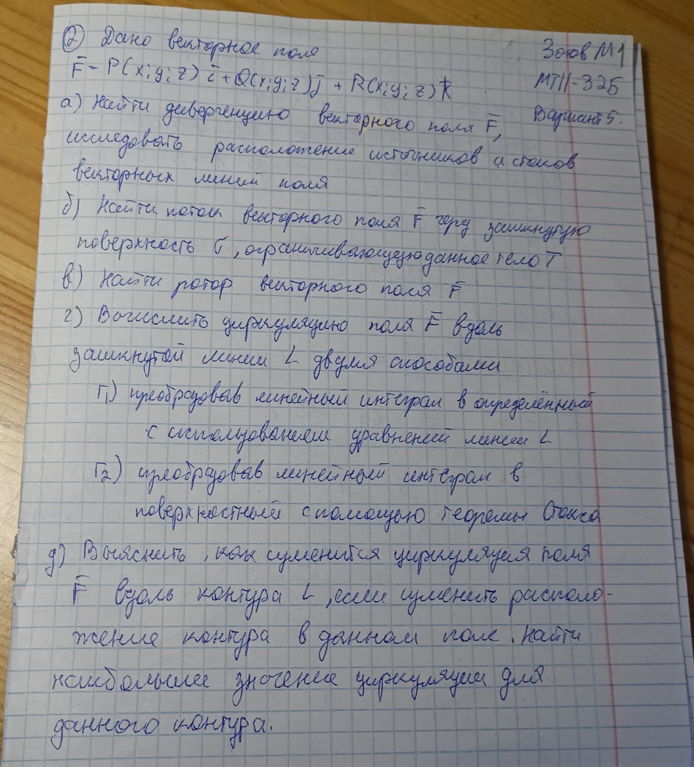 ② Дано векторное поле
Зотов М1
F̄ = P(x;y;z) ī + Q(x;y;z) j̄ + R(x;y;z) k̄
МТ11-32Б
а) Найти дивергенцию векторного поля F̄,
Вариант 5.
исследовать расположение источников и стоков
векторных линий поля
б) Найти поток векторного поля F̄ через замкнутую
поверхность σ, ограничивающую данное тело T
в) Найти ротор векторного поля F̄
г) Вычислить циркуляцию поля F̄ вдоль
замкнутой линии L двумя способами
г₁) преобразовав линейный интеграл в определённый
с использованием уравнений линии L
г₂) преобразовав линейный интеграл в
поверхностный с помощью теоремы Стокса
д) Выяснить, как изменится циркуляция поля
F̄ вдоль контура L, если изменить располо-
жение контура в данном поле. Найти
наибольшее значение циркуляции для
данного контура.